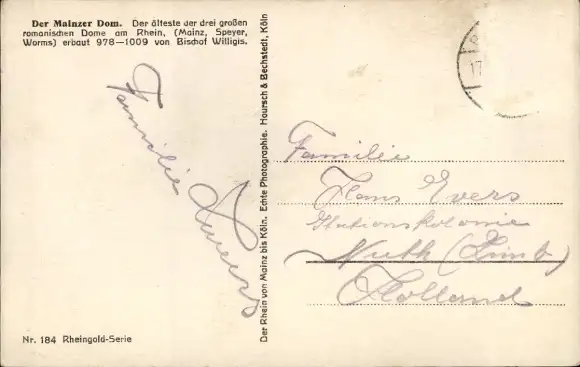 Der Mainzer Dom. Der älteste der drei großen
romanischen Dome am Rhein, (Mainz, Speyer,
Worms) erbaut 978—1009 von Bischof Willigis.
Familie
Nr. 184 Rheingold-Serie
Der Rhein von Mainz bis Köln. Echte Photographie. Hoursch & Bechstedt, Köln
17
Familie
Hans Evers
Stationskolonie
Nuth (Limb)
Holland